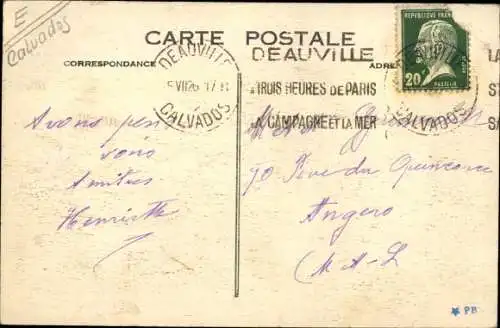 E
Calvados
CARTE POSTALE
CORRESPONDANCE
ADRE
DEAUVILLE
CALVADOS
DEAUVILLE
TROIS HEURES DE PARIS
LA CAMPAGNE ET LA MER
CALVADOS
REPUBLIQUE FRANC
20
LA
S
SA
Avons
vous
Amitiés
Henriette
70 Rue du Quinconce
Angers
M-&-L
PB